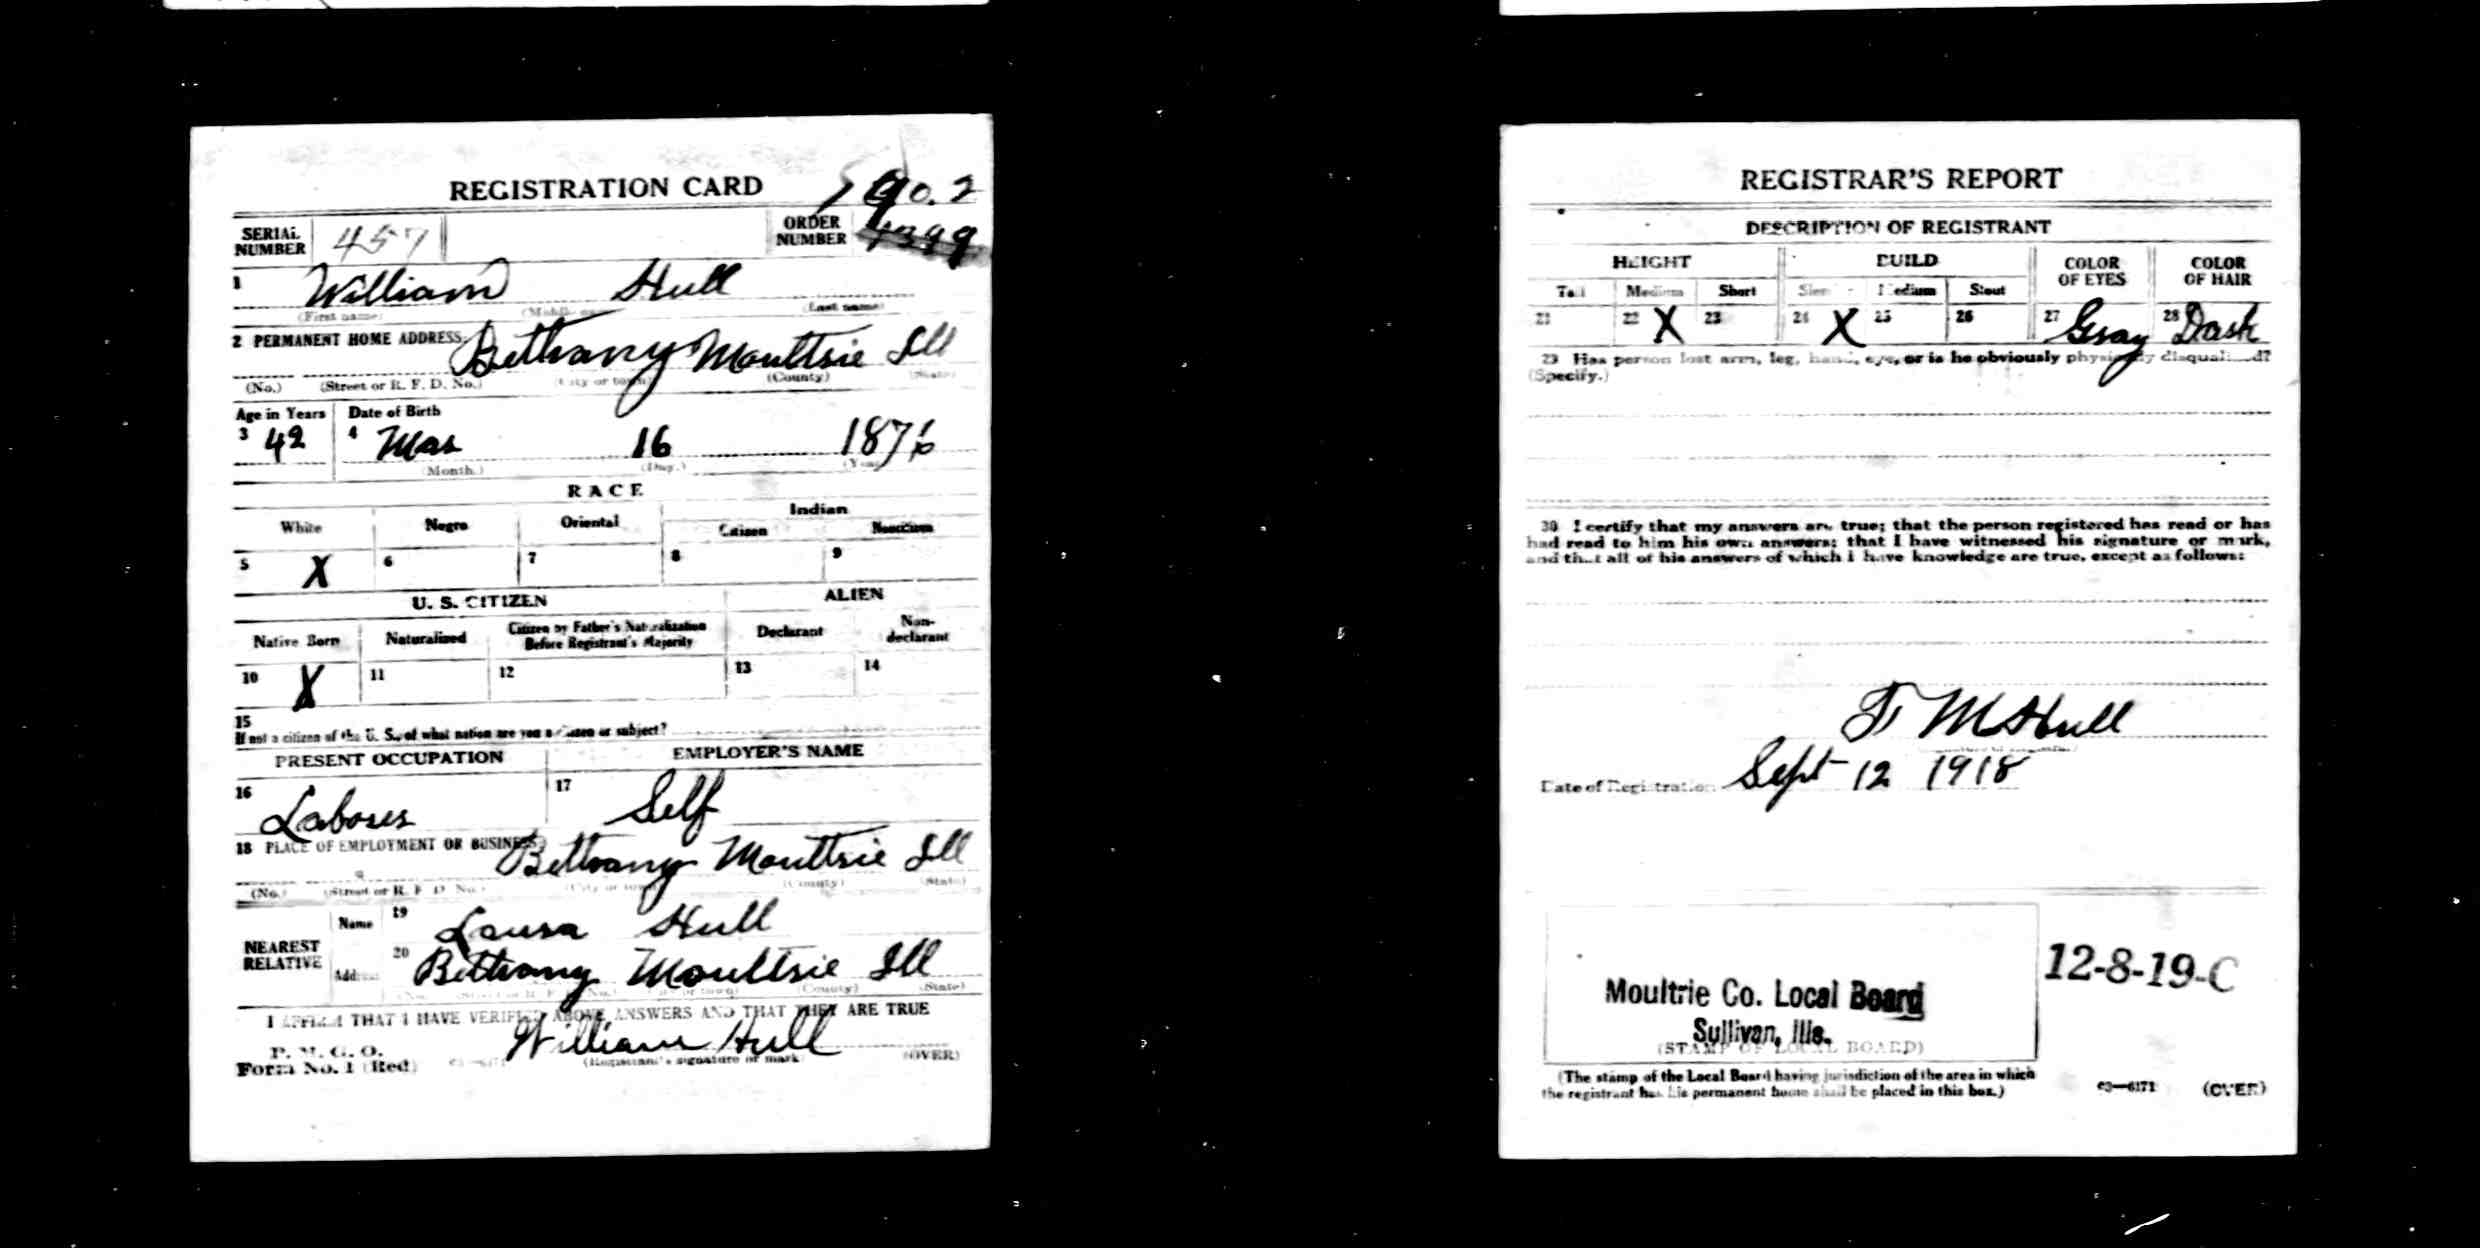 REGISTRATION CARD
SERIAL NUMBER 457 ORDER NUMBER 4399
1 William Hull
(First name) (Last name)
2 PERMANENT HOME ADDRESS: Bethany Moultrie Ill
(No.) (Street or R. F. D. No.) (City or town) (County) (State)
Age in Years Date of Birth
3 42 4 Mar 16 1876
(Month.) (Day.) (Year.)
RACE
White Negro Oriental Indian
Citizen Noncitizen
5 X 6 7 8 9
U. S. CITIZEN ALIEN
Native Born Naturalized Citizen by Father's Naturalization Before Registrant's Majority Declarant Non-declarant
10 X 11 12 13 14
15
If not a citizen of the U. S., of what nation are you a citizen or subject?
PRESENT OCCUPATION EMPLOYER'S NAME
16 Laborer 17 Self
18 PLACE OF EMPLOYMENT OR BUSINESS: Bethany Moultrie Ill
(No.) (Street or R. F. D. No.) (City or town) (County) (State)
NEAREST RELATIVE
Name 19 Laura Hull
Address 20 Bethany Moultrie Ill
(County) (State)
I AFFIRM THAT I HAVE VERIFIED ABOVE ANSWERS AND THAT THEY ARE TRUE
P. M. G. O.
Form No. 1 (Red) William Hull
(Registrant's signature or mark) (OVER)
REGISTRAR'S REPORT
DESCRIPTION OF REGISTRANT
HEIGHT BUILD COLOR OF EYES COLOR OF HAIR
Tall Medium Short Slender Medium Stout
21 22 X 23 24 X 25 26 27 Gray 28 Dark
29 Has person lost arm, leg, hand, eye, or is he obviously physically disqualified?
(Specify.)
30 I certify that my answers are true; that the person registered has read or has
had read to him his own answers; that I have witnessed his signature or mark,
and that all of his answers of which I have knowledge are true, except as follows:
M Hull
Date of Registration Sept 12 1918
12-8-19-C
Moultrie Co. Local Board
Sullivan, Ills.
(STAMP OF LOCAL BOARD)
(The stamp of the Local Board having jurisdiction of the area in which
the registrant has his permanent home shall be placed in this box.)
03—6171 (OVER)